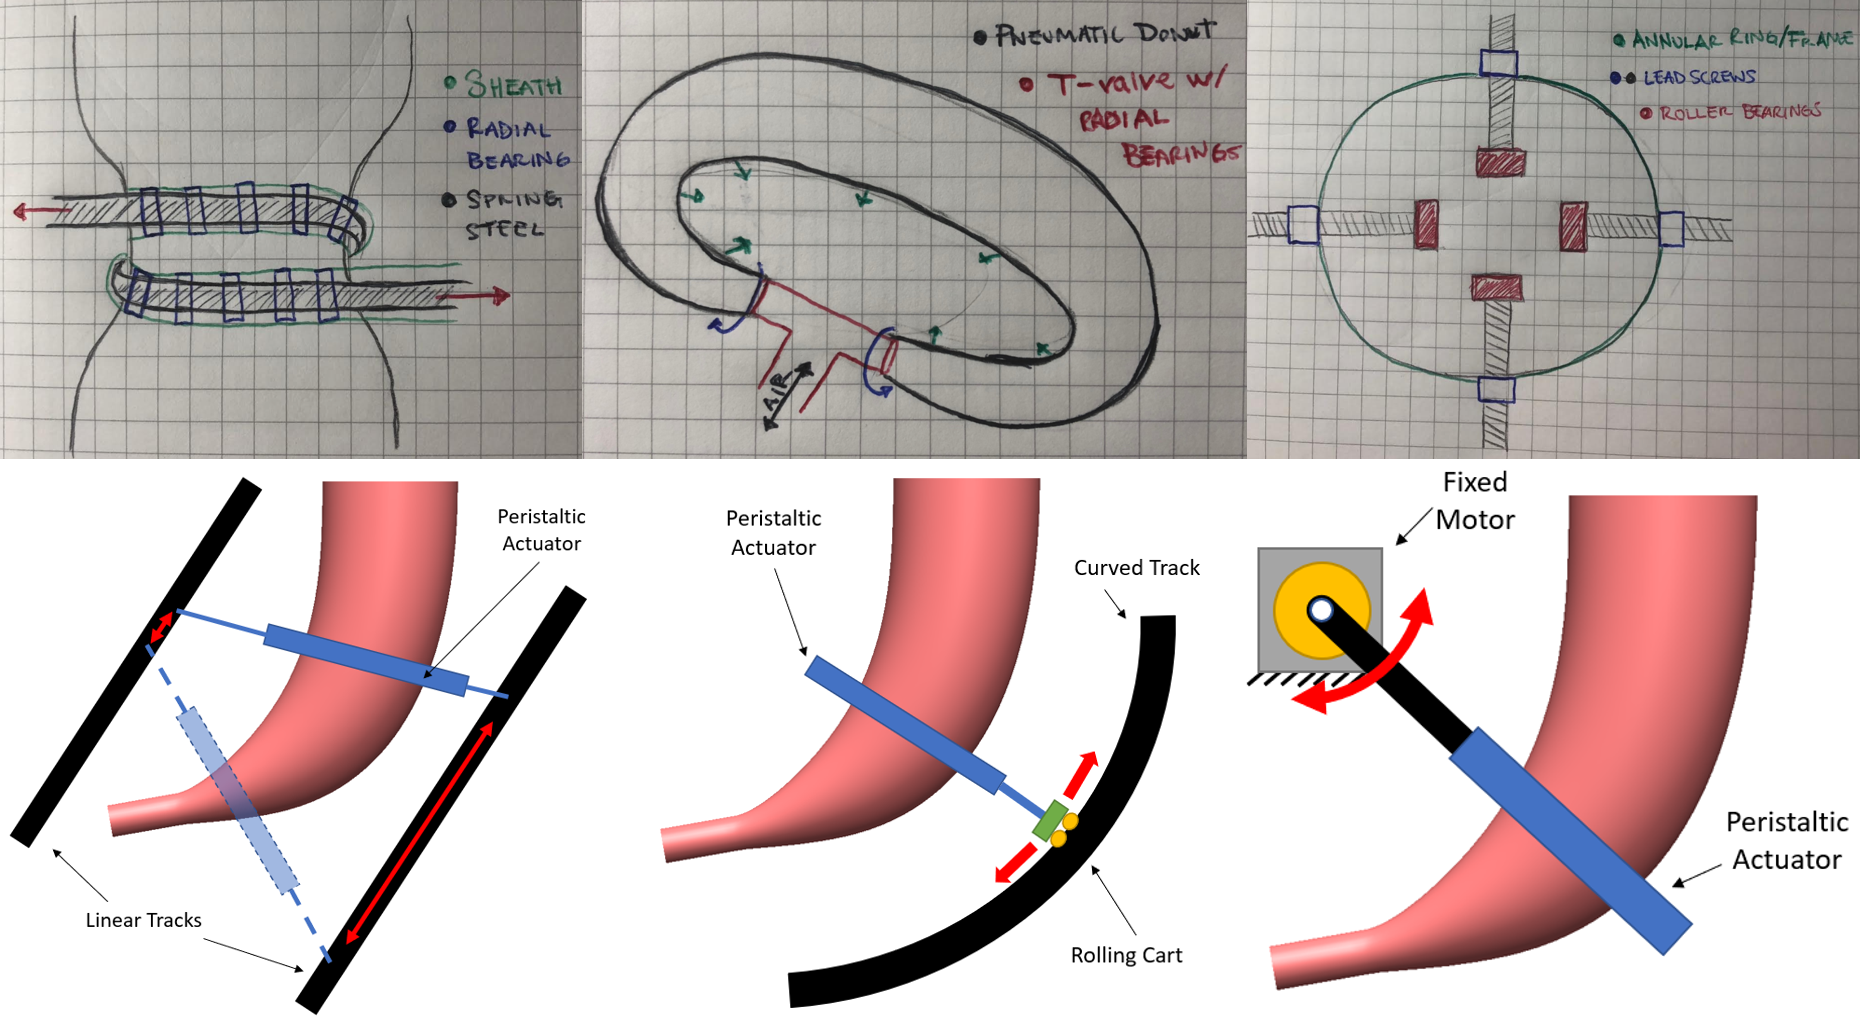 SHEATH
RADIAL
BEARING
SPRING
STEEL
PNEUMATIC DONUT
T-valve w/
RADIAL
BEARINGS
AIR
ANNULAR RING/FRAME
LEAD SCREWS
ROLLER BEARINGS
Peristaltic
Actuator
Linear Tracks
Peristaltic
Actuator
Curved Track
Rolling Cart
Fixed
Motor
Peristaltic
Actuator